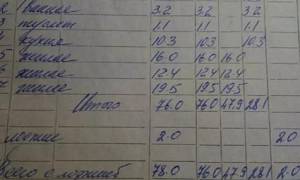 2 ванная 3.2 3.2 3.2
3 туалет 1.1 1.1 1.1
4 кухня 10.3 10.3 10.3
5 жилая 16.0 16.0 16.0
6 жилая 12.4 12.4 12.4
7 жилая 19.5 19.5 19.5
Итого 76.0 76.0 47.9 28.1
лоджие 2.0 2.0
Всего с лоджией 78.0 76.0 47.9 28.1 2.0